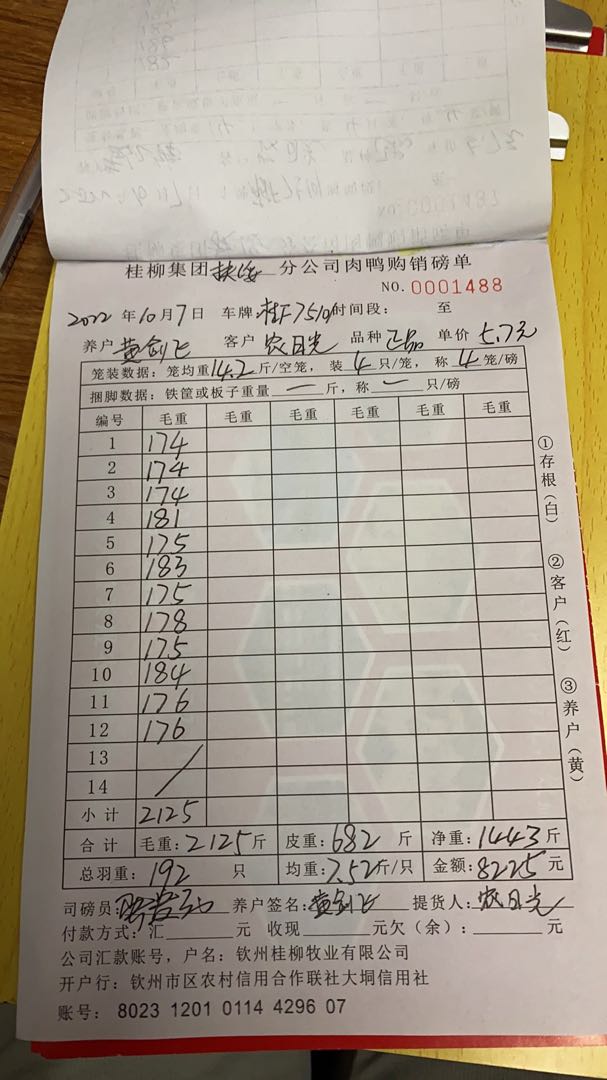 桂柳集团扶绥分公司肉鸭购销磅单
NO.0001488
2022年10月7日 车牌:桂F7519 时间段: 至
养户黄剑飞 客户农日光 品种正品 单价5.7元
笼装数据:笼均重14.2斤/空笼,装4只/笼,称4笼/磅
捆脚数据:铁筐或板子重量一斤,称一只/磅
编号 毛重 毛重 毛重 毛重 毛重 毛重
1 174
2 174
3 174
4 181
5 175
6 183
7 175
8 178
9 175
10 184
11 176
12 176
13
14
小计 2125
合计 毛重:2125斤 皮重:682斤 净重:1443斤
总羽重:192只 均重:7.52斤/只 金额:8225元
司磅员: 养户签名:黄剑飞 提货人:农日光
付款方式:汇 元 收现 元欠(余): 元
公司汇款账号,户名:钦州桂柳牧业有限公司
开户行:钦州市区农村信用合作联社大垌信用社
账号:8023 1201 0114 4296 07
①存根(白)
②客户(红)
③养户(黄)